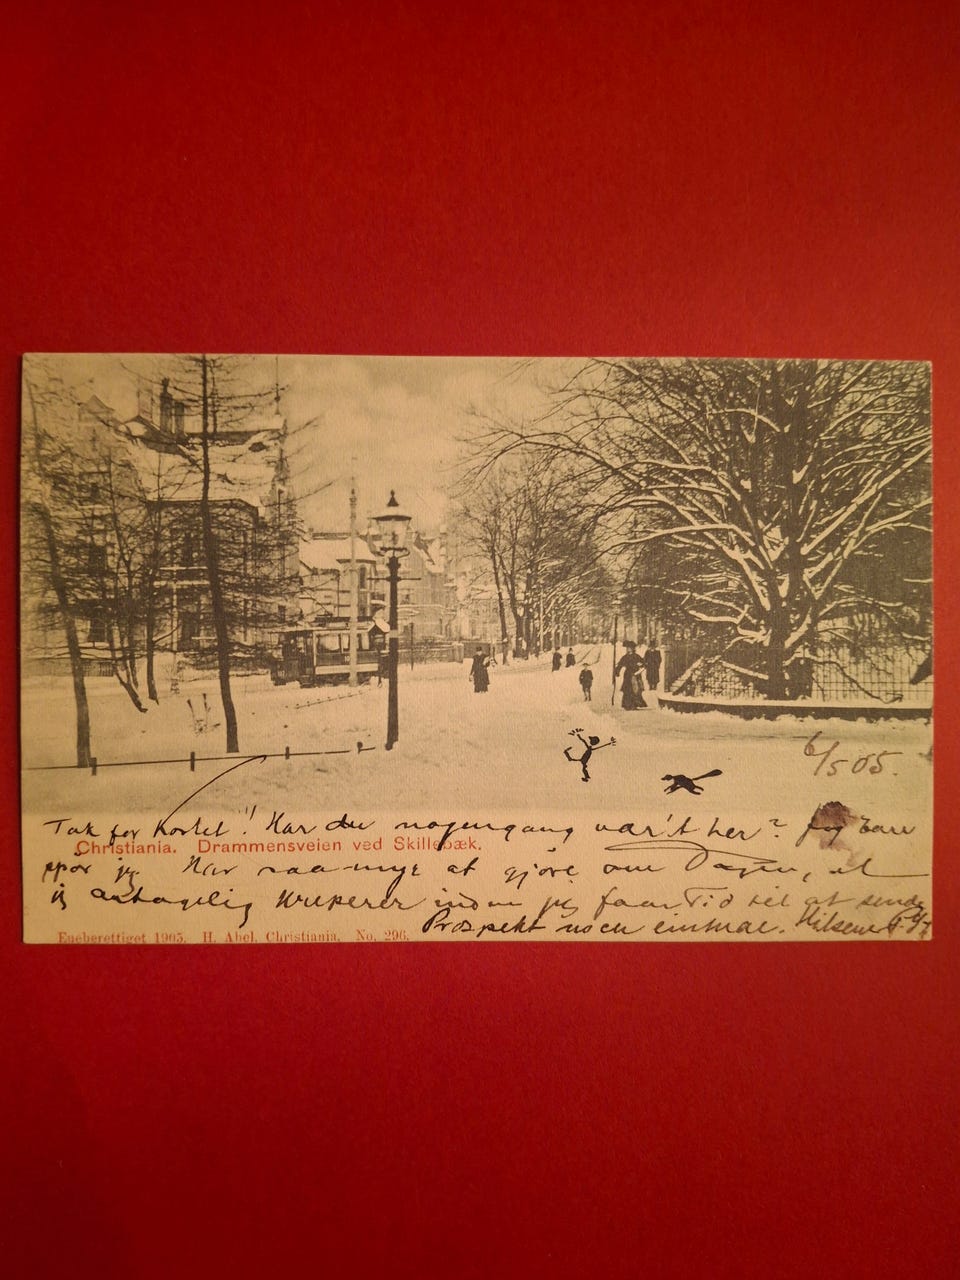 6/5 05.
Tak for kortet! Har du nogengang vær't her? Jeg bare
Christiania. Drammensveien ved Skillebæk.
spør jeg. Har saa mye at gjøre om Dagen, at
jeg antagelig kreperer inden jeg faar Tid til at sende
Prospekt noch einmal. Hilsen
Eneberettiget 1905. H. Abel, Christiania. No. 296.